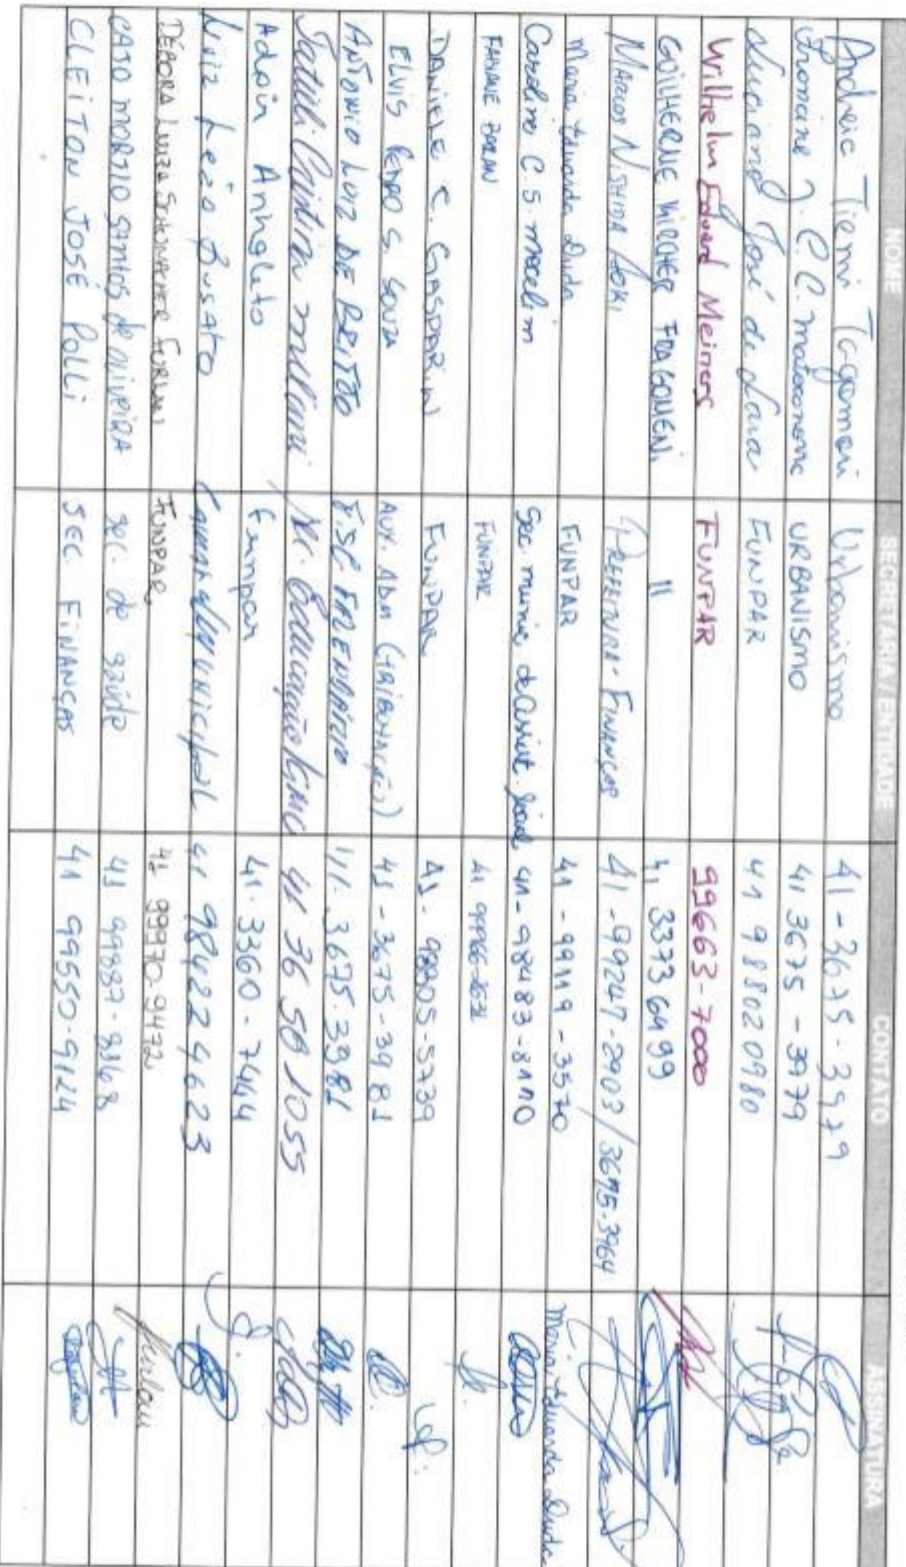 NOME SECRETARIA/ENTIDADE CONTATO ASSINATURA
Andreia Tiemi Tagomori Urbanismo 41-3675-3979
J. C.C. URBANISMO 41 3675-3979
Luciano José de Lara FUNPAR 41 988020980
Wilhelm Eduard Meiners FUNPAR 99663-7000
GUILHERME KIRCHER FRAGOMENI 11 41 3373 6499
MARCOS NISHIDA AOKI PREFEITURA-FINANÇAS 41-99247-2903/3675-3964
Maria Eduarda Duda FUNPAR 41-99119-3570 Maria Eduarda Duda
Caroline C S. Mocelim Sec. munic. de Assist. Social 41-98483-8110
FUNPAR 41
DANIELE C. GASPARIN FUNPAR 41-98805-5739
ELVIS S. SOUZA AUX. ADM 41-3675-3981
ANTONIO LUIZ DE BRITTO 3675-3981
Educação 41 36 58 1055
Adoin Funpar 41.3360-7444
Luiz Leão Busato Municipal 41 984224623
DÉBORA LUIZA FURLAN FUNPAR 41 99970-9472
CAIO SANTOS de OLIVEIRA sec. de saúde 41 99887-8168
CLEITON JOSÉ POLLI SEC. FINANÇAS 41 99550-9124